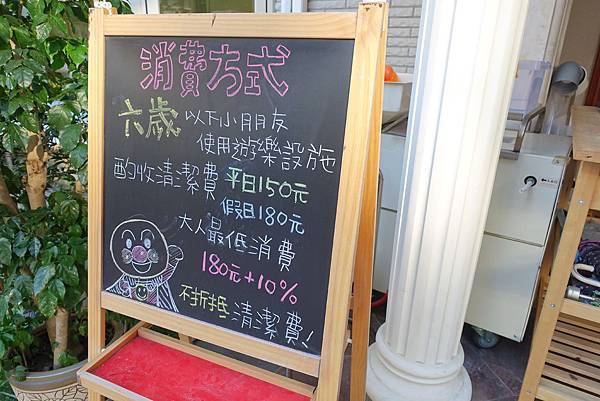 消費方式
六歲以下小朋友
使用遊樂設施
酌收清潔費平日150元
假日180元
大人最低消費
180元+10%
不折抵清潔費!